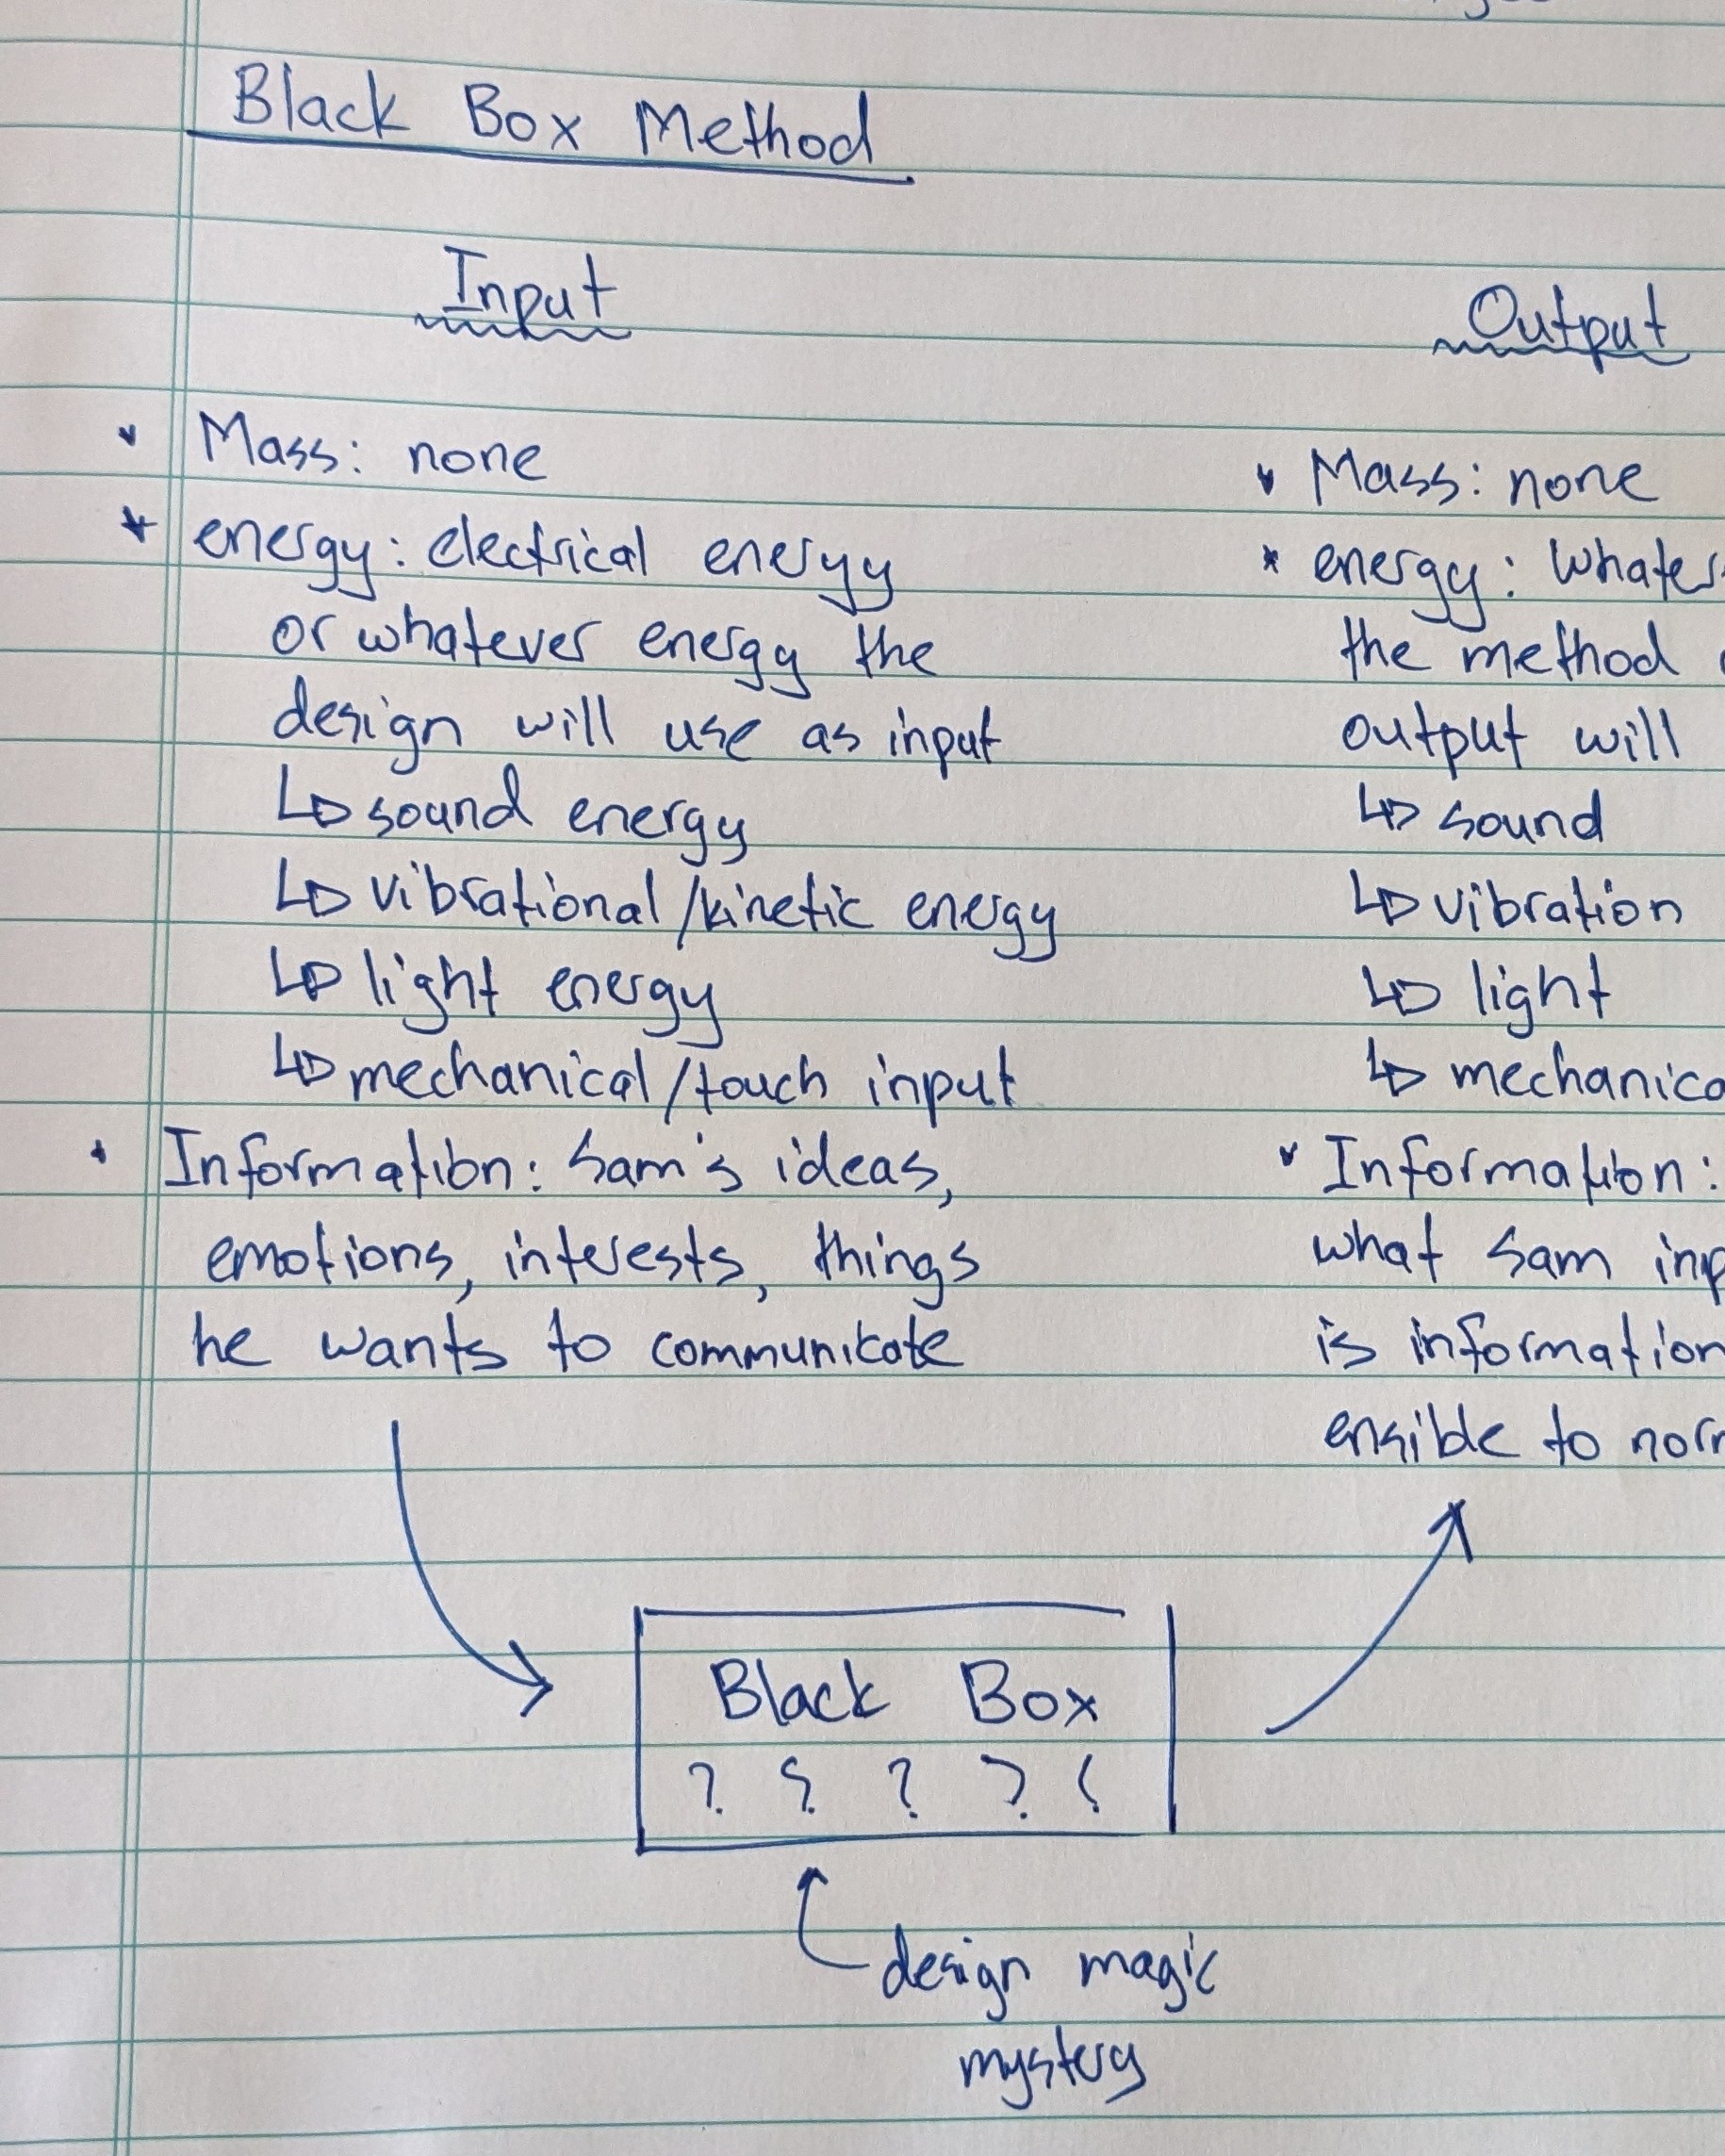 Black Box Method
Input
Mass: none
energy: electrical eneryy
or whatever energy the
design will use as input
sound energy
vibrational/kinetic energy
light energy
mechanical/touch input
Information: Sam's ideas,
emotions, interests, things
he wants to communicate
Output
Mass: none
energy:
the method
output will
sound
vibration
light
mechanica
Information:
what Sam inp
is information
ensible to nor
Black Box
? ? ? ? ?
design magic
mystery